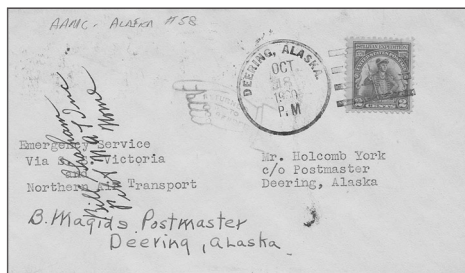 AAMC - ALASKA #58
DEERING, ALASKA
OCT
P.M
2
Bill Graham
Pilot
Nome
Emergency Service
Via S. S. Victoria
and
Northern Air Transport
Mr. Holcomb York
c/o Postmaster
Deering, Alaska
B. Magids Postmaster
Deering, Alaska